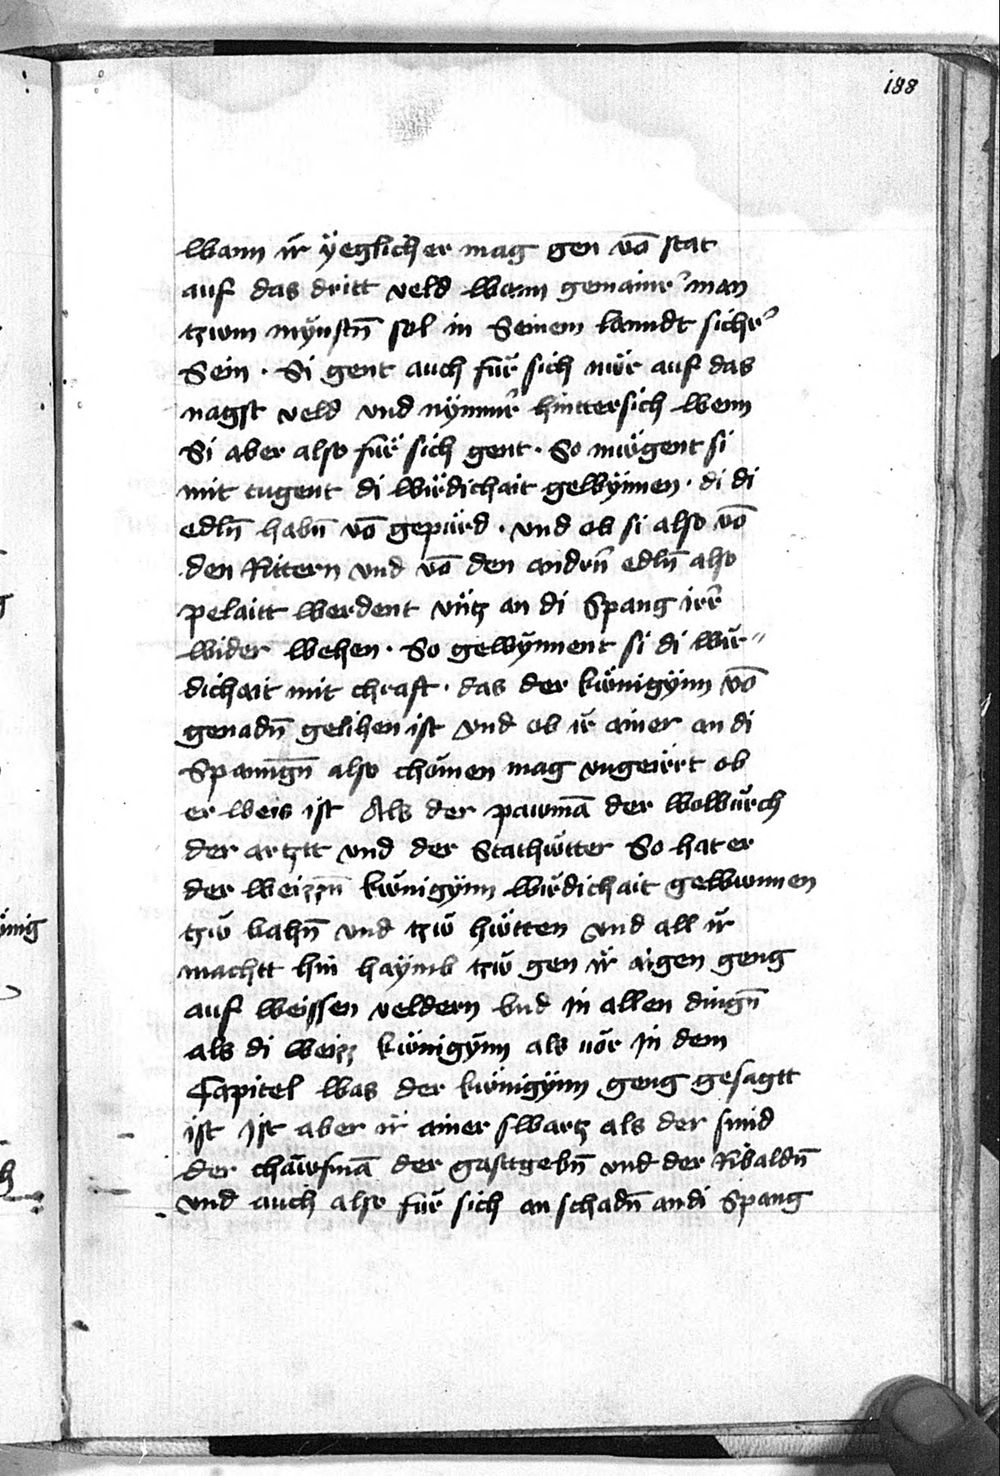 188
wann ir̈ ÿeglicher mag gen vō stat
auf das dritt veld wann gemainr̛ man
tzwm mÿnstn̄ sol in Seinem lanndt sichr̛
Sein · Si gent auch für sich nwr auf das
nagst veld vnd nÿmmr̛ hinttersich wenn
Si aber also für sich gent · So mügent si
mit tugent di wirdichait gewÿnnen · di di
edln̄ habn̄ vō gepürd · vnd ob si also vō
den Rittern vnd vō den andrn̄ edln̄ also
pelaitt werdent vntz an di Spang irr̛
wider wehen · So gewÿnnent si di wir̈〃
dichait mit chraft · das der künigÿnn vō
genadn̄ gelihen ist vnd ob ir̈ ainer an di
Spanngn̄ also chömen mag vngeirrt ob
er weis ist Als der pawmā der wolwürch
der artztt vnd der Stathütter So hat er
der weizzn̄ künigÿnn wirdichait gewunnen
tzw̄ lahn̄ vnd tzw̄ hütten vnd all ir̈
machtt hin haÿmb tzw̄ gen ir̈ aigen geng
auf weissen veldern vnd in allen dingn̄
als di weizz künigÿnn als vör in dem
Capitel was der künigÿnn geng gesagtt
ist Ist aber ir̈ ainer swartz als der smid
der chawfmā der gasttgebn̄ vnd der Ribaldn̄
vnd auch also für sich an schadn̄ an di Spang